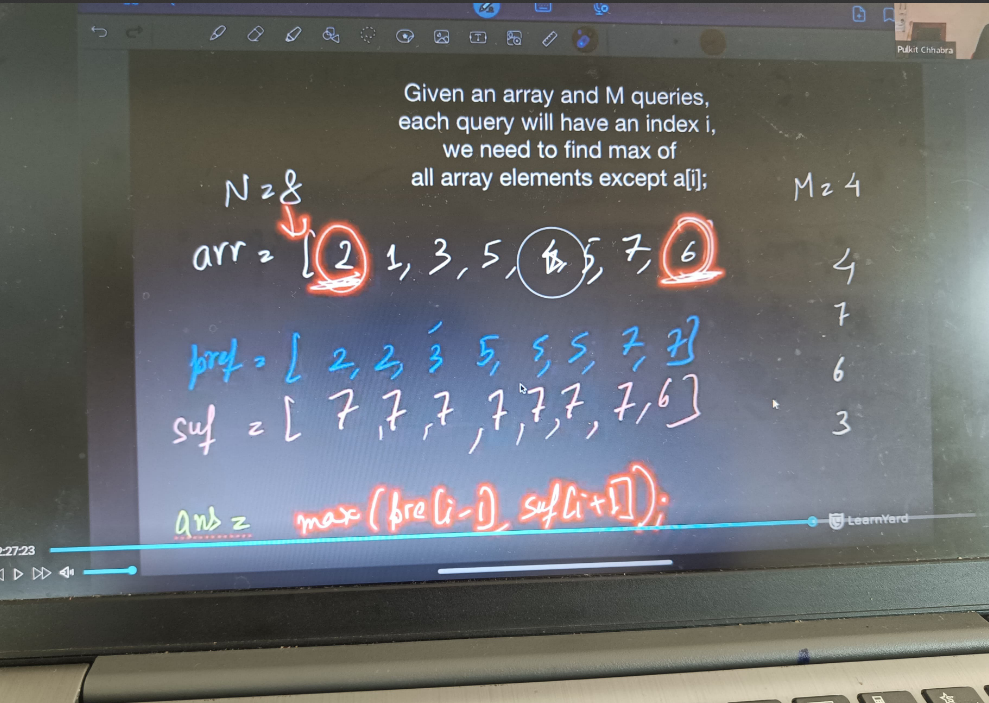 Pulkit Chhabra
Given an array and M queries,
each query will have an index i,
we need to find max of
all array elements except a[i];
N = 8
M = 4
arr = [ 2 1, 3, 5, 5, 7, 6
4
7
pref = [ 2, 2, 3 5, 5, 5, 7, 7]
6
suf = [ 7, 7, 7, 7, 7, 7, 7, 6]
3
ans = max (pre[i-1], suf[i+1]);
LearnYard
2:27:23